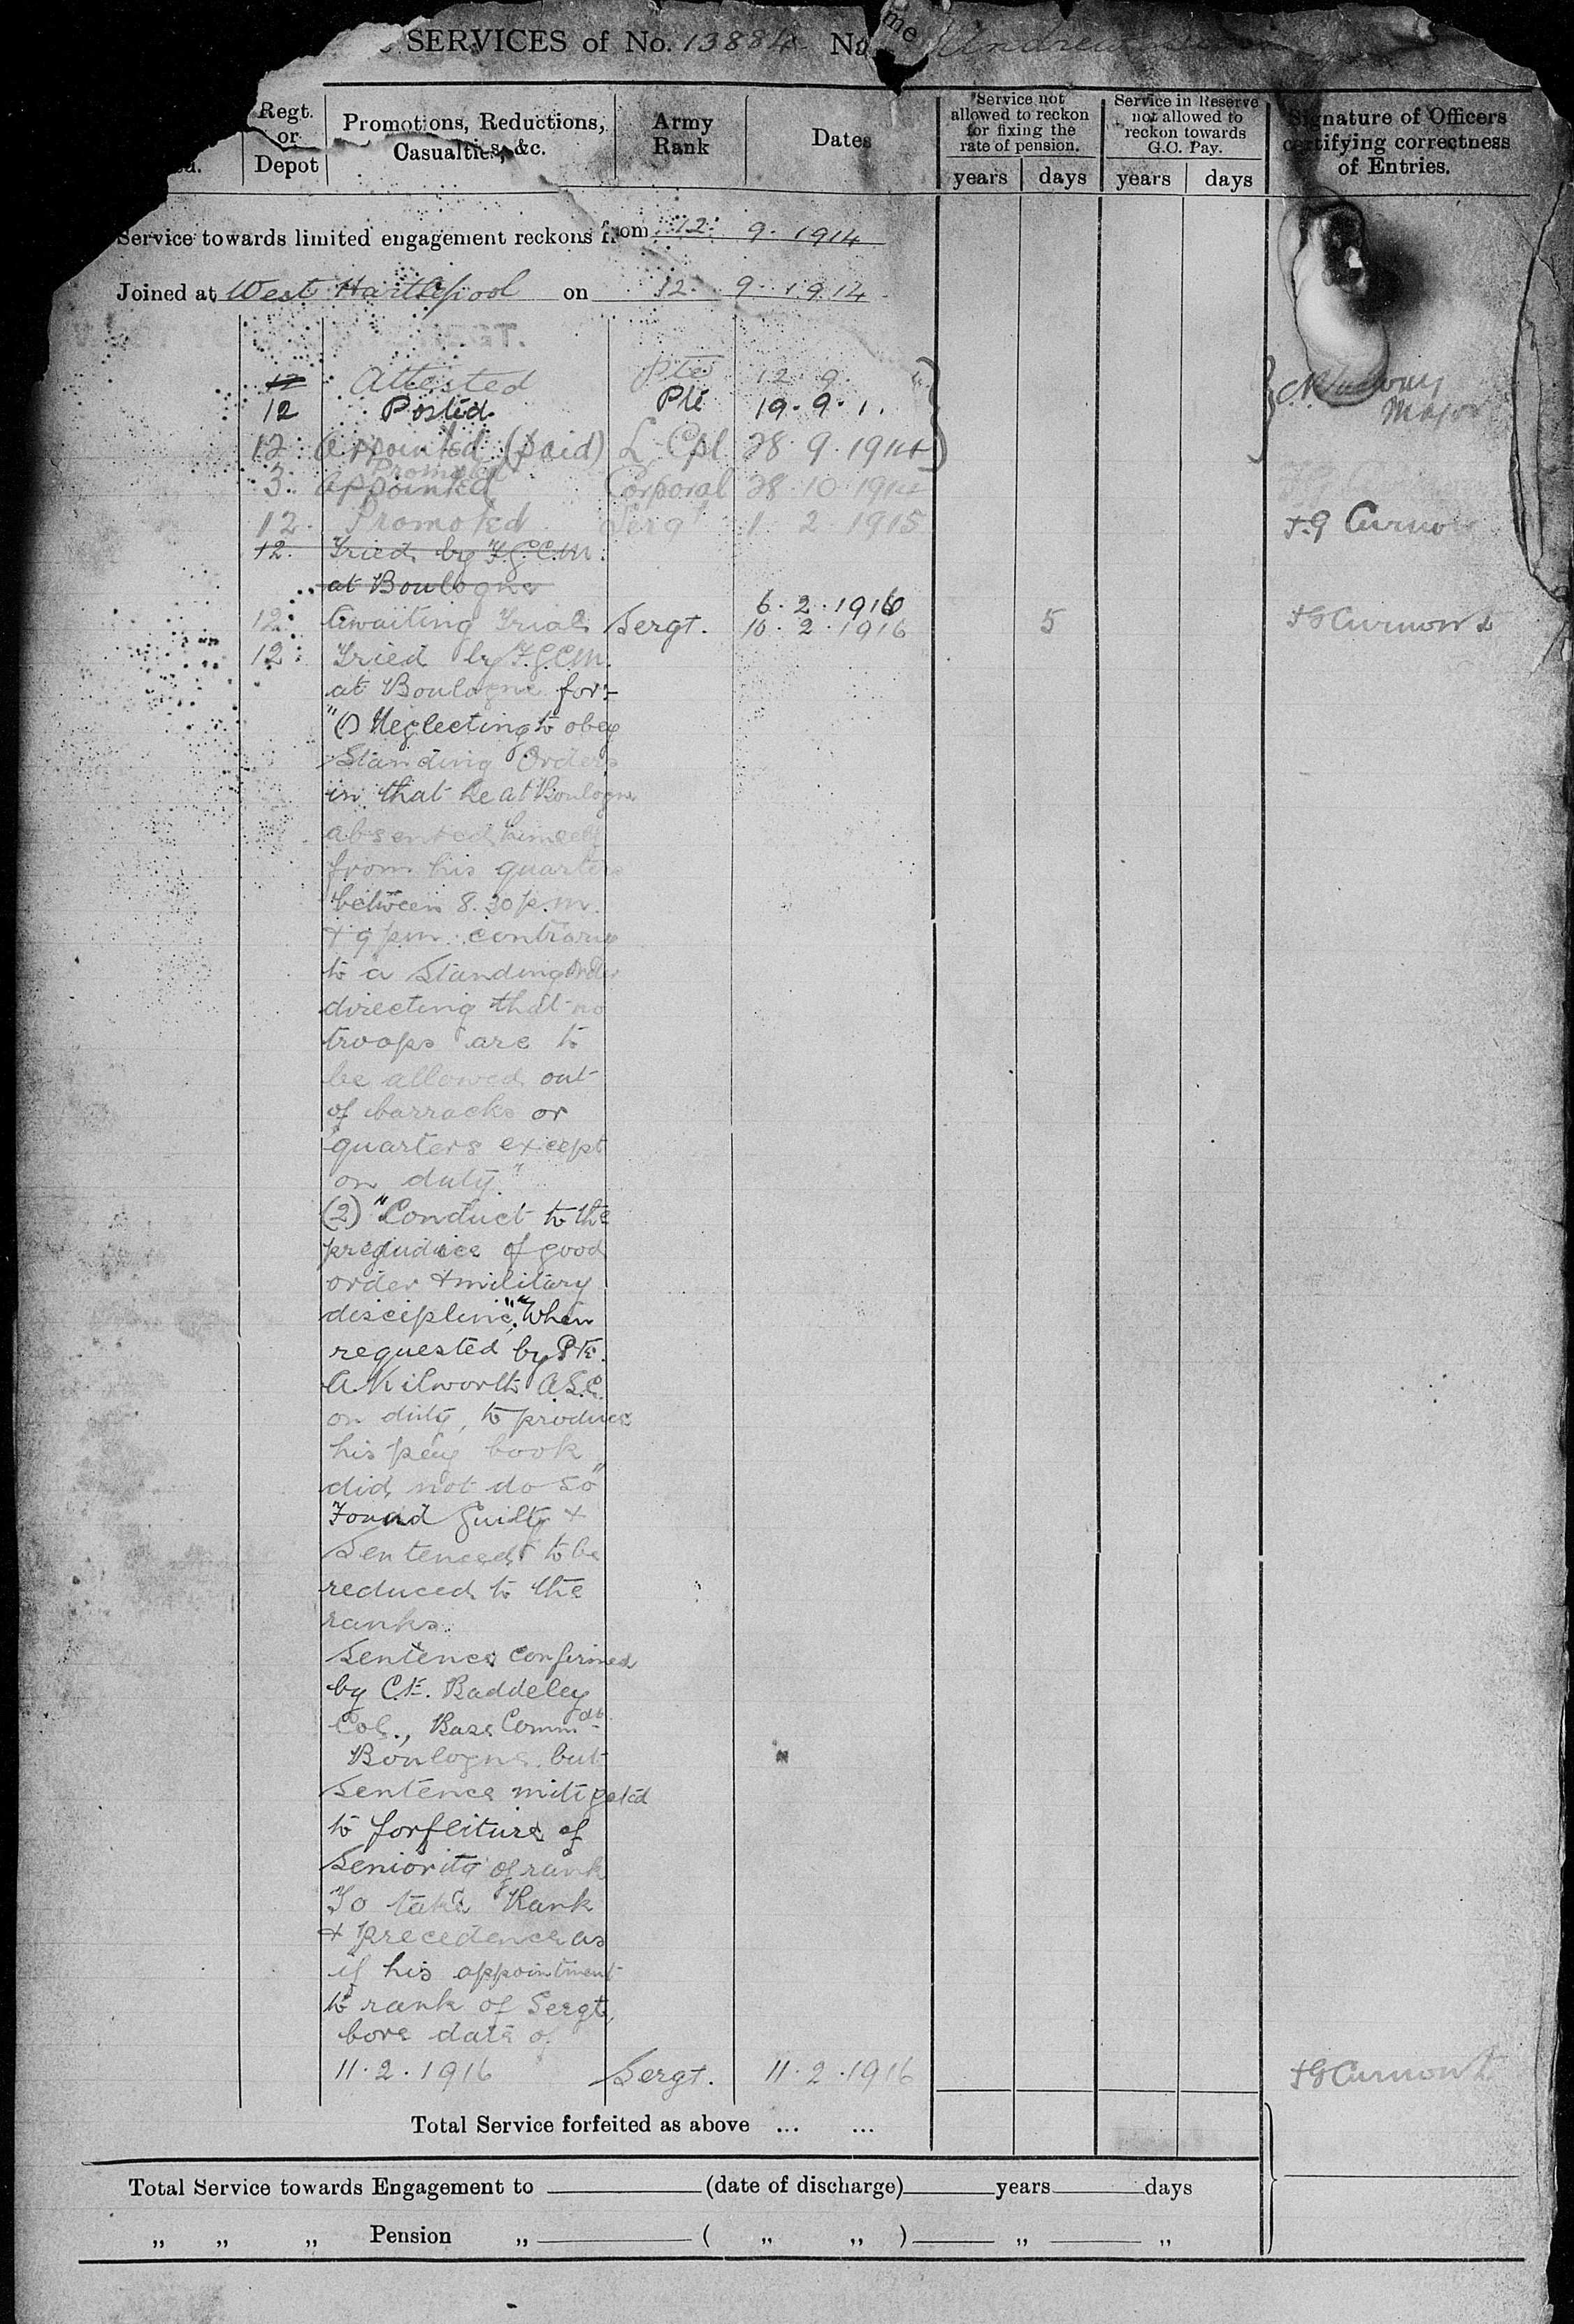 SERVICES of No. 13884 Name Andrew
Regt. or Depot
Promotions, Reductions, Casualties, &c.
Army Rank
Dates
Service not allowed to reckon for fixing the rate of pension.
years days
Service in Reserve not allowed to reckon towards G.C. Pay.
years days
Signature of Officers certifying correctness of Entries.
Service towards limited engagement reckons from 12. 9. 1914
Joined at West Hartlepool on 12. 9. 1914
12 Attested Pte 12 9
12 Posted Pte 19. 9. 1
Major
12 Appointed (paid) L Cpl 28. 9. 1914
Promoted
3. Appointed Corporal 28. 10. 1914
12. Promoted Sergt 1 2 1915 Curnow
12. Tried by F.G.C.M.
at Boulogne
6. 2. 1916
12. Awaiting Trial Sergt. 10. 2. 1916 5 Curnow Lt
12. Tried by F.G.C.M.
at Boulogne for:-
"(1) Neglecting to obey
Standing Orders
in that he at Boulogne
absented himself
from his quarters
between 8.30 p.m.
+ 9 pm. contrary
to a Standing Order
directing that no
troops are to
be allowed out
of barracks or
quarters except
on duty."
(2) "Conduct to the
prejudice of good
order + military
discipline". "When
requested by Pte.
A Kilworth A.S.C.
on duty, to produce
his pay book
did not do so"
Found Guilty +
Sentenced to be
reduced to the
ranks.
Sentence confirmed
by C.E. Baddeley
Col., Base Commdt.
Boulogne but
Sentence mitigated
to forfeiture of
Seniority of rank
To take Rank
+ precedence as
if his appointment
to rank of Sergt.
bore date of
11. 2. 1916 Sergt. 11. 2. 1916 Curnow Lt
Total Service forfeited as above ... ...
Total Service towards Engagement to (date of discharge) years days
„ „ „ Pension „ ( „ „ ) „ „